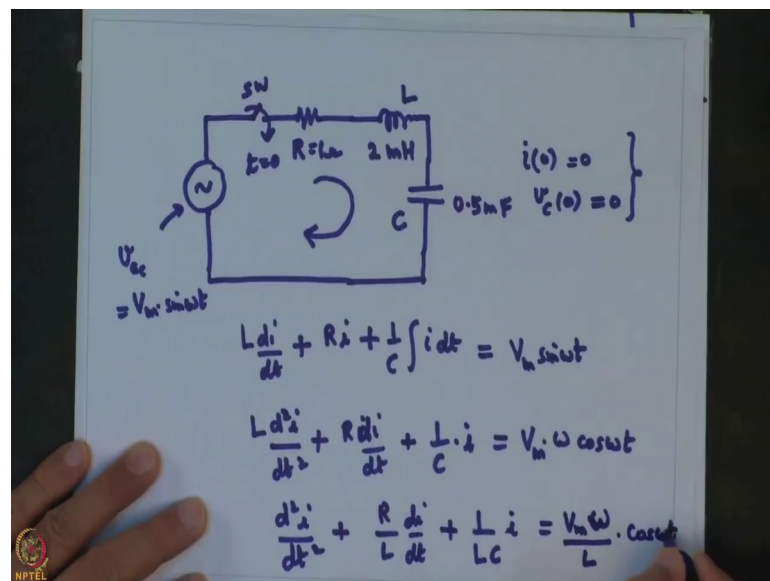 SW
L
t=0 R=1Ω 2mH
i(0) = 0
C 0.5mF v_c(0) = 0
v_ac
= V_m. sinωt
L di/dt + Ri + 1/C ∫ i dt = V_m sinωt
L d²i/dt² + R di/dt + 1/C · i = V_m. ω cosωt
d²i/dt² + R/L di/dt + 1/LC i = V_m ω/L . cosωt
NPTEL